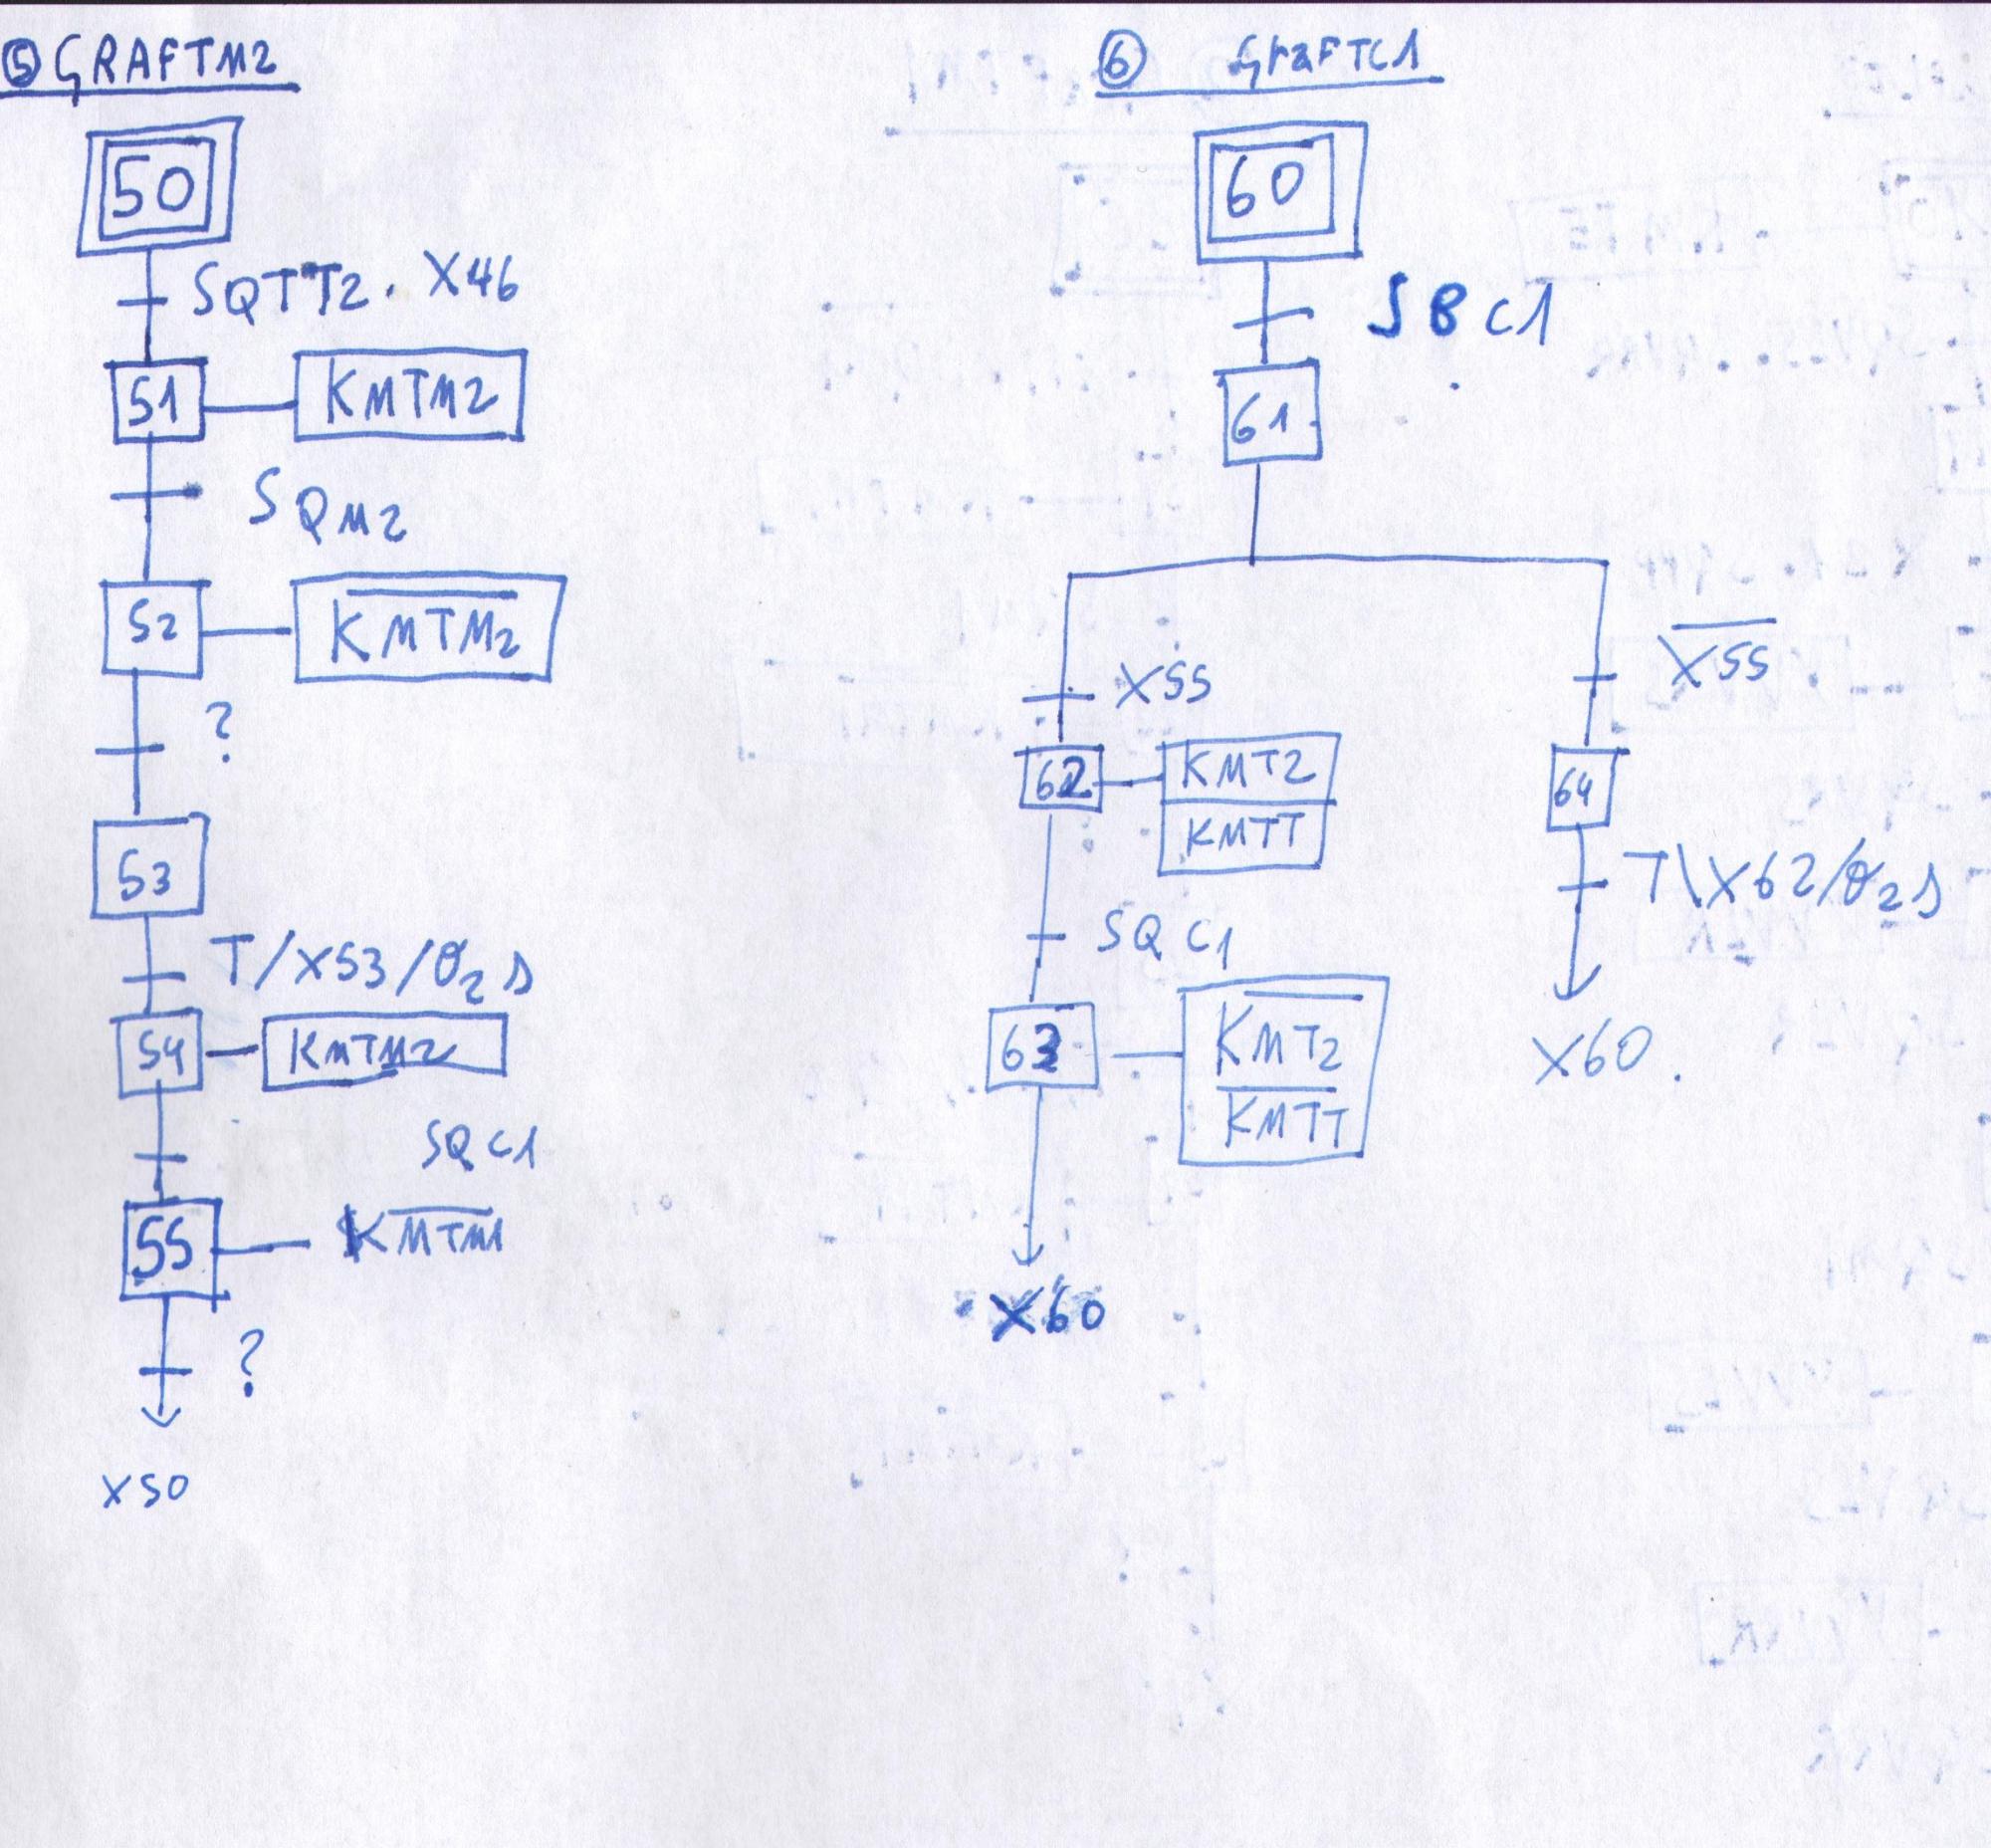 ⑤ GRAFTM2
50
SQTT2. X46
51
KMTM2
SQM2
52
K̅M̅T̅M̅2̅
?
53
T/X53/θ2s
54
KMTM2
SQC1
55
KM̅T̅M̅1̅
?
X50
⑥ GraFTC1
60
SBC1
61
X55
X̅5̅5̅
62
KMT2
KMTT
64
SQC1
T\X62/θ2s
63
K̅M̅T̅2̅
K̅M̅T̅T̅
X60
X60.